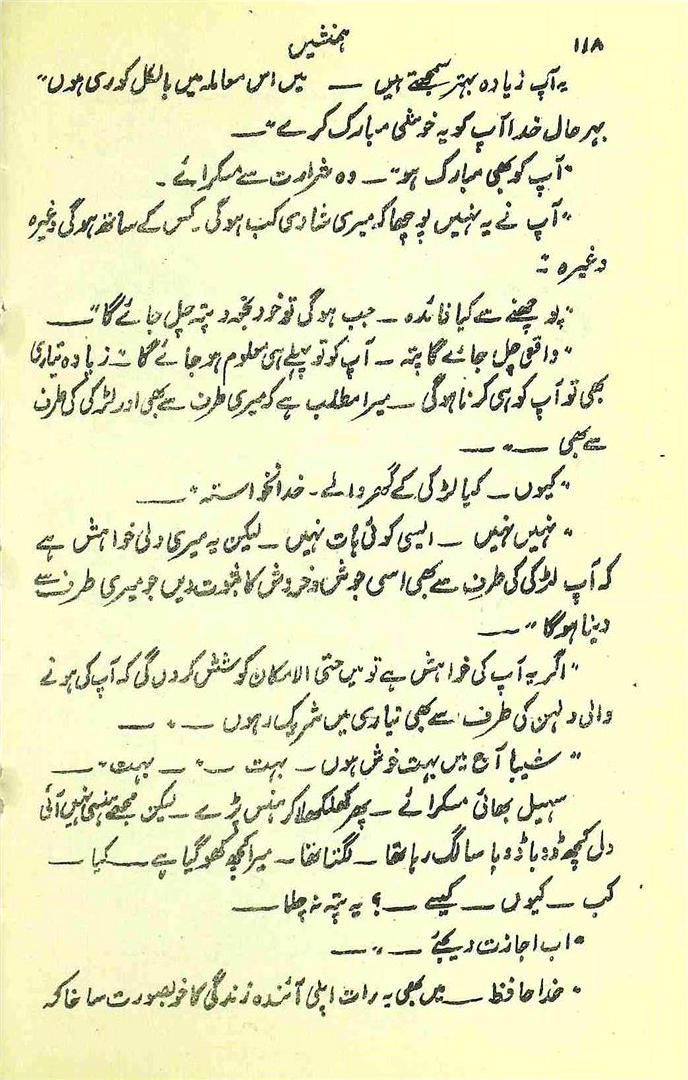 ۱۱۸
ہمنشیں
یہ آپ زیادہ بہتر سمجھتے ہیں — میں اس معاملہ میں بالکل کوری ہوں"
بہر حال خدا آپ کو یہ خوشی مبارک کرے"—
"آپ کو بھی مبارک ہو"— وہ شرارت سے مسکرائے۔
"آپ نے یہ نہیں پوچھا کہ میری شادی کب ہوگی۔ کس کے ساتھ ہوگی وغیرہ
وغیرہ"
"پوچھنے سے کیا فائدہ — جب ہوگی تو خود بخود پتہ چل جائے گا"—
"واقعی چل جائے گا پتہ — آپ کو تو پہلے ہی معلوم ہو جائے گا — زیادہ تیاری
بھی تو آپ کو ہی کرنا ہوگی — میرا مطلب ہے کہ میری طرف سے بھی اور لڑکی کی طرف
سے بھی —"—
"کیوں — کیا لڑکی کے گھر والے۔ خدانخواستہ"—
"نہیں نہیں — ایسی کوئی بات نہیں — لیکن یہ میری دلی خواہش ہے
کہ آپ لڑکی کی طرف سے بھی اسی جوش و خروش کا ثبوت دیں جو میری طرف سے
دینا ہوگا"—
"اگر یہ آپ کی خواہش ہے تو میں حتی الامکان کوشش کروں گی کہ آپ کی ہونے
والی دلہن کی طرف سے بھی تیاری میں شریک رہوں —"—
"شیبا آج میں بہت خوش ہوں — بہت —"— بہت"—
سہیل بھائی مسکرائے — پھر کھلکھلا کر ہنس پڑے — لیکن مجھے ہنسی نہیں آئی
دل کچھ ڈوبا ڈوبا سا لگ رہا تھا — لگتا تھا — میرا کچھ کھو گیا ہے — کیا —
کب — کیوں — کیسے —؟ یہ پتہ نہ چلا—
"اب اجازت دیجئے —"—
"خدا حافظ — میں بھی یہ رات اپنی آئندہ زندگی کا خوبصورت سا خاکہ